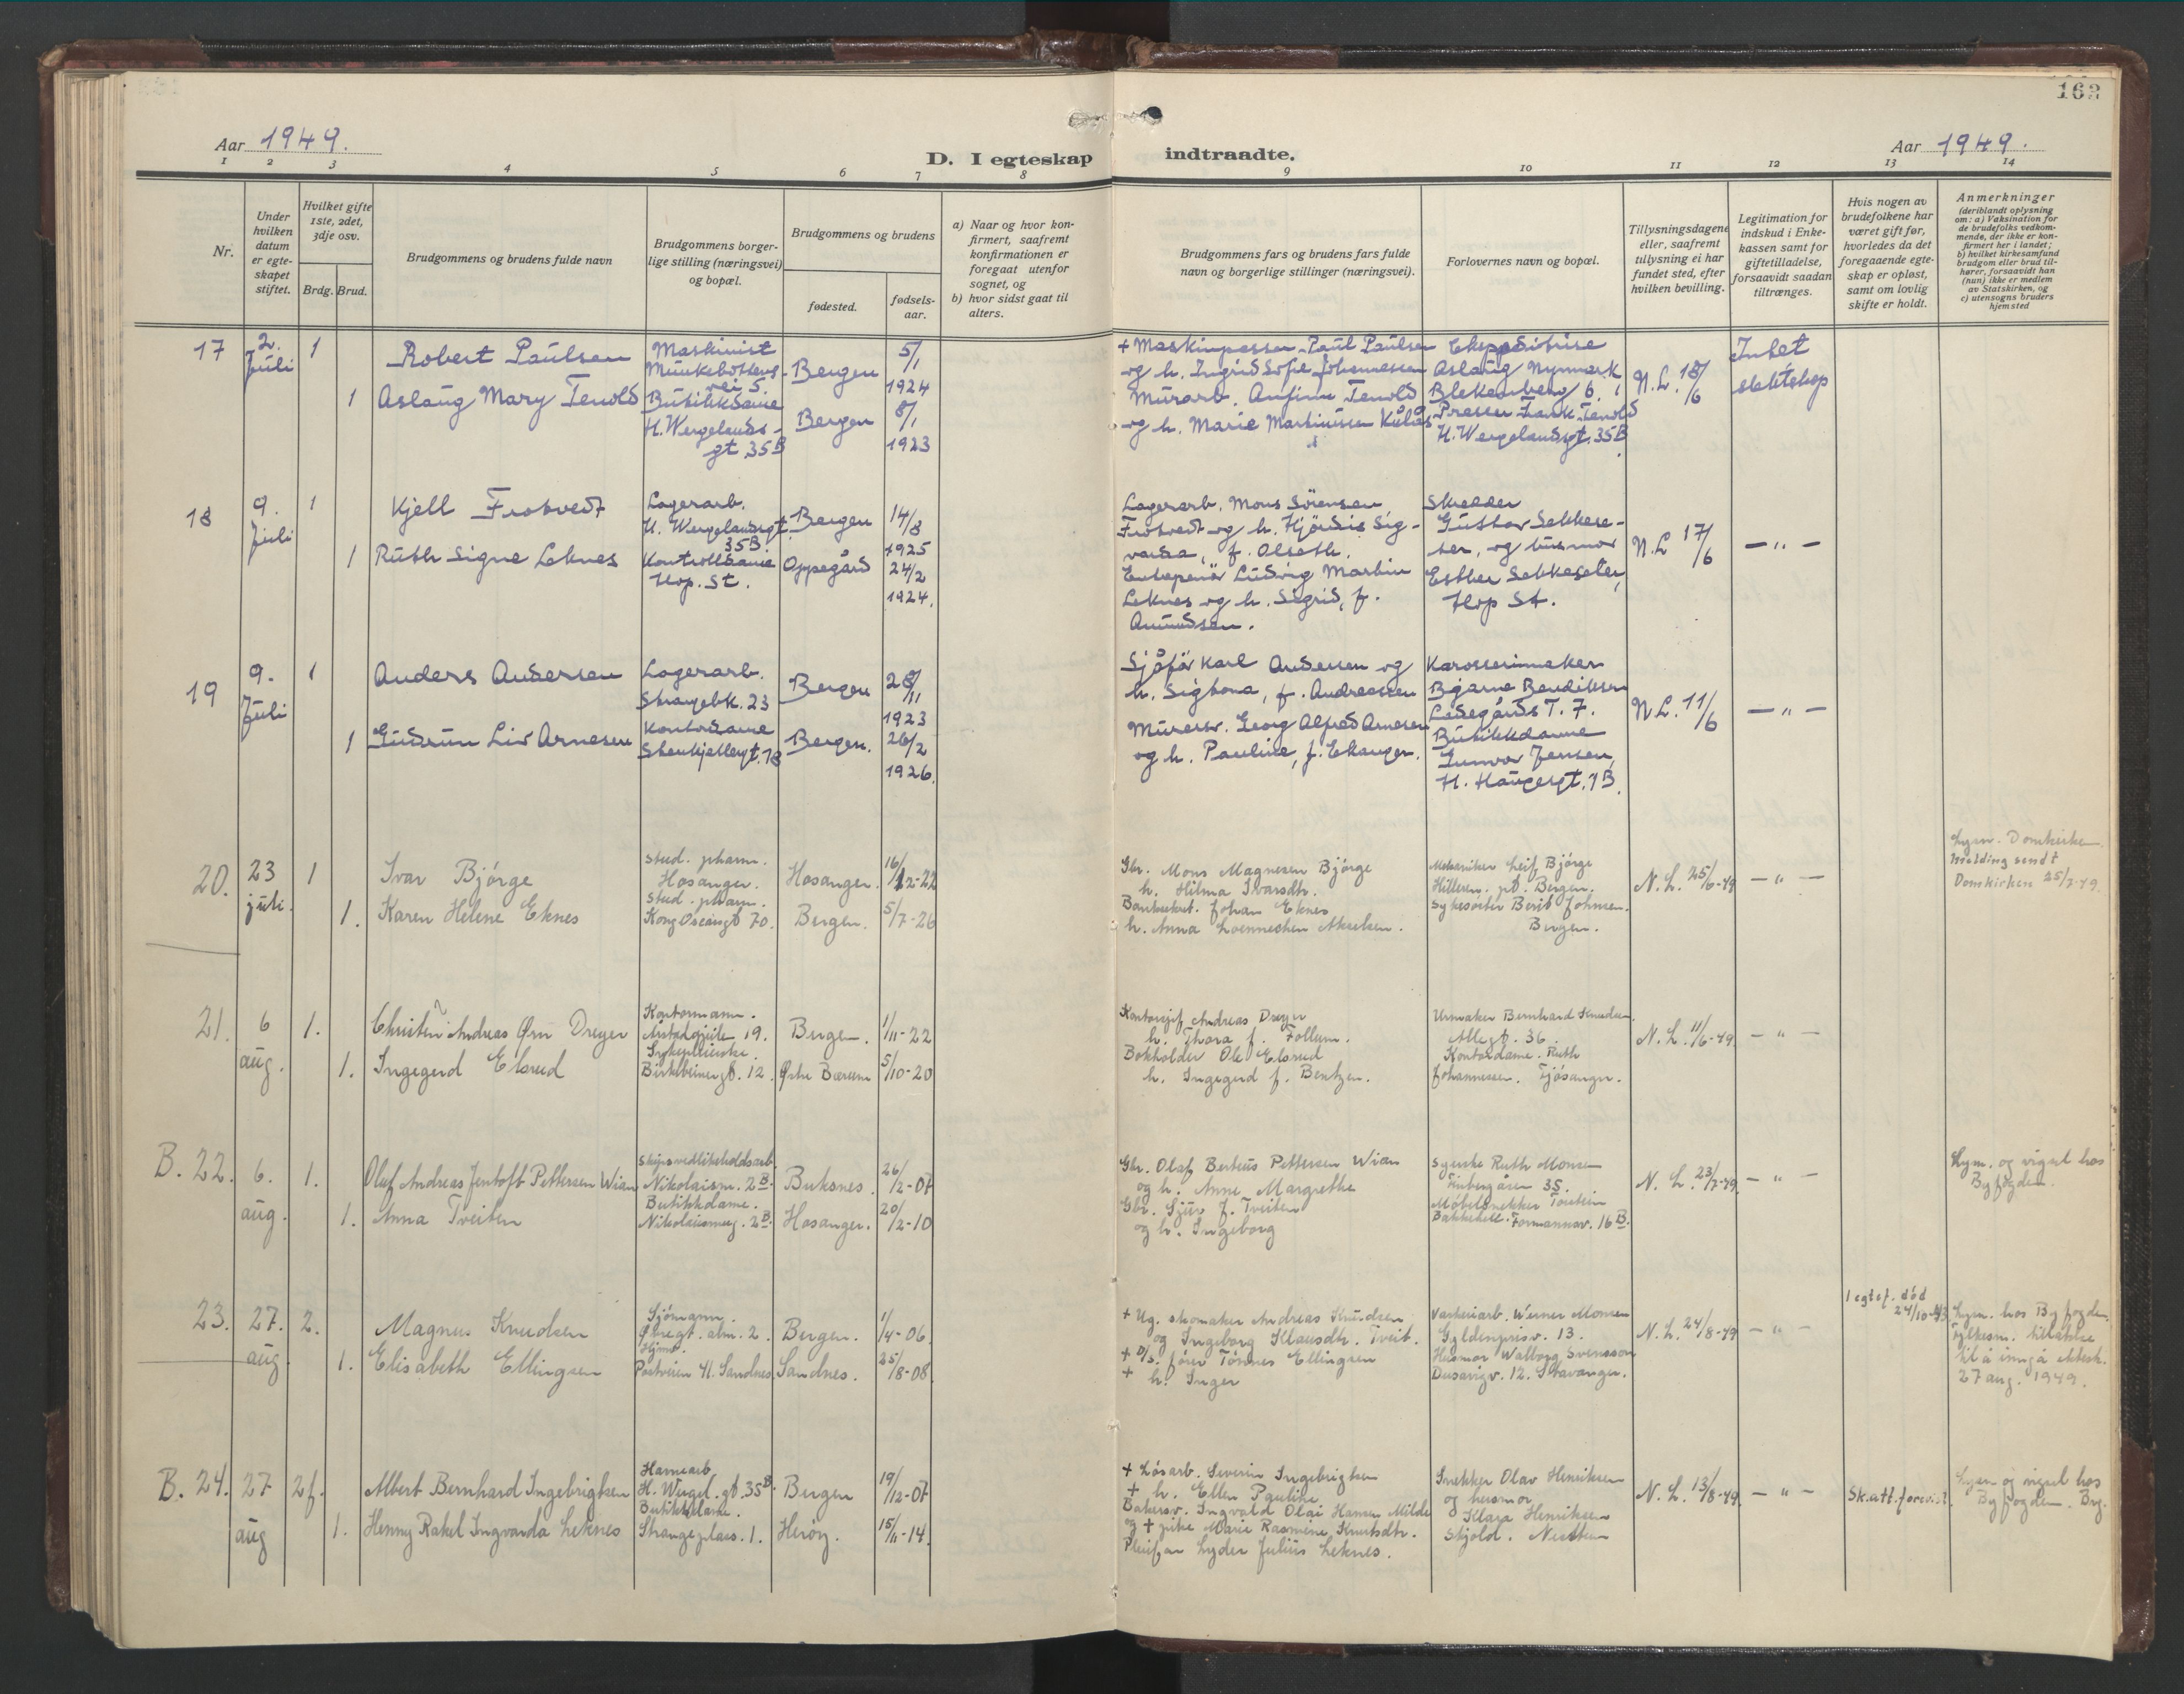 163
Aar 1949.
D. I egteskap indtraadte.
Aar 1949.
1 2 3 4 5 6 7 8 9 10 11 12 13 14
Nr.
Under hvilken datum er egte-skapet stiftet.
Hvilket gifte 1ste, 2det, 3dje osv.
Brdg. Brud.
Brudgommens og brudens fulde navn
Brudgommens borger-lige stilling (næringsvei) og bopæl.
Brudgommens og brudens
fødested.
fødsels-aar.
a) Naar og hvor kon-firmert, saafremt konfirmationen er foregaat utenfor sognet, og
b) hvor sidst gaat til alters.
Brudgommens fars og brudens fars fulde navn og borgerlige stillinger (næringsvei).
Forlovernes navn og bopæl.
Tillysningsdagene eller, saafremt tillysning ei har fundet sted, efter hvilken bevilling.
Legitimation for indskud i Enke-kassen samt for giftetilladelse, forsaavidt saadan tiltrænges.
Hvis nogen av brudefolkene har været gift før, hvorledes da det foregaaende egte-skap er opløst, samt om lovlig skifte er holdt.
Anmerkninger
(deriblandt oplysning om: a) Vaksination for de brudefolks vedkom-mende, der ikke er kon-firmert her i landet;
b) hvilket kirkesamfund brudgom eller brud til-hører, forsaavidt han (hun) ikke er medlem av Statskirken, og
c) utensogns bruders hjemsted
17
2. Juli
1
Robert Paulsen
Maskinist
Munkebottens-
vei 5
Bergen
5/1
1924
+ Maskinpasser Paul Paulsen
og h. Ingrid Sofie Johannessen
Ekspeditrise
Aslaug Nymark
Blekenberg 6.
N.L. 18/6
Intet
ekteskap
1
Aslaug Mary Tenold
Butikkdame
H. Wergelands-
gt. 35B
Bergen
8/1
1923
Murarb. Anfinn Tenold
og h. Marie Martinussen Kulås
Presser Frank Tenold
H. Wergelandsgt. 35B
18
9. Juli
1
Kjell Frotvedt
Lagerarb.
H. Wergelandsgt.
35B.
Bergen
14/8
1925
Lagerarb. Mons Sörensen
Frotvedt og h. Hjördis Sig-
varda, f. Olseth.
Skredder
Gustav Sekkese-
ter, og husmor
Esther Sekkeseter,
Hop St.
N.L 17/6
— „ —
1
Ruth Signe Leknes
Kontrolldame
Hop. St.
Oppegård
24/2
1924.
Entrepenör Ludvig Martin
Leknes og h. Sigrid, f.
Amundsen.
19
9. Juli
1
Anders Andersen
Lagerarb.
Strangebk. 23
Bergen
28/11
1923
Sjåför Karl Andersen og
h. Sigtona, f. Andreassen
Karosserimaker
Bjarne Bendiksen
Ladegårds T. 7.
N.L. 11/6
— „ —
1
Gudrun Liv Arnesen
Kontordame
Stenkjellergt. 18
Bergen.
26/2
1926.
Murersv. Georg Alfred Arnesen
og h. Pauline, f. Ekanger.
Butikkdame
Gunvor Jensen,
H. Haugesgt. 1B.
20.
23 juli.
1
Ivar Bjørge
stud. pharm.
Hosanger.
Hosanger.
16/12-22
Gbr. Mons Magnesen Bjørge
h. Hilma Ivarsdtr.
Mekaniker Leif Bjørge
Hilleren. pt. Bergen.
N.L. 25/6-49
— „ —
Lysn. Domkirke.
Melding sendt
Domkirken 25/7-49.
1.
Karen Helene Eknes
stud. pharm.
Kong Oscarsgt 70.
Bergen.
5/7-26
Banksekret. Johan Eknes
h. Anna Loennechen Akselsen.
Sykesøster Berit Johnsen.
Bergen.
21.
6 aug.
1.
Christen Andreas Ørn Dreyer
Kontormann.
Årstadgjeile 19.
Bergen.
1/11-22
Kontorsjef Andreas Dreyer
h. Thora f. Follum.
Urmaker Bernhard Knudsen.
Allegt. 36.
N.L. 11/6-49.
— „ —
1.
Ingegerd Elsrud
Sykepleierske.
Birkebeinergt. 12.
Østre Bærum
5/10-20
Bokholder Ole Elsrud
h. Ingegerd f. Bentzen.
Kontordame. Ruth
Johannessen. Fjøsanger.
B. 22.
6. aug.
1.
Oluf Andreas Jentoft Pettersen Wian
Skipsvedlikeholdsarb.
Nikolaism. 2B.
Buksnes.
26/2-07
Gbr. Olaf Berteus Pettersen Wian
og h. Anne Margrethe
Syerske Ruth Monsen
35.
N. L. 23/7-49.
— „ —
Lysn. og vigsel hos
Byfogden.
1.
Anna Tveiten
Butikkdame.
Nikolaismug. 2B.
Hosanger.
20/2-10
Gbr. Sjur J. Tveiten
og h. Ingeborg
Møbelsnekker Torstein
Bakketeig. Formannsv. 16B.
23.
27. aug.
2.
Magnus Knudsen
Sjømann.
Øvregt. alm. 2.
Bergen.
1/4-06.
+ Ug. skomaker Andreas Knudsen
og Ingeborg Klausdtr. Tveit.
Verkeriarb. Werner Monsen
Gyldenprisv. 13.
N.L. 24/8-49
— „ —
1 egtef. død
24/10-43
Lysn. hos Byfogden.
Fylkesm. tillatelse
til å inngå ektesk.
27 aug. 1949.
1.
Elisabeth Ellingsen
Hjme.
Postveien 41. Sandnes
Sandnes.
25/8-08.
+ D/s. fører Tønnes Ellingsen
+ h. Inger
Husmor Walborg Svensson
Dusavigv. 12. Stavanger.
B. 24.
27 aug
2f.
Albert Bernhard Ingebrigtsen
Havnearb
H. Wergel. gt. 35B.
Bergen
19/12-07
+ Løsarb. Severin Ingebrigtsen
+ h. Ellen Pauline
Snekker Olav Henriksen
og husmor
Klara Henriksen
Skjold. Nesttun
N.L. 13/8-49.
— „ —
Sk.att. forevist.
Lysn og vigsel hos
Byfogden. Brg.
1.
Henny Rakel Ingvarda Leknes
Strangeplass. 1.
Herøy.
15/11-14.
Bakersv. Ingvald Olai Hansen Milde
og + pike Marie Rasmine Knutsdtr.
Pleiefar Lyder Julius Leknes.